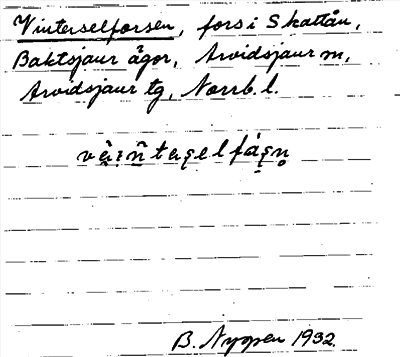 Vinterselforsen, fors i Skattån,
Baktsjaur ägor, Arvidsjaur sn,
Arvidsjaur tg, Norrb. l.
B. Nypen 1932.